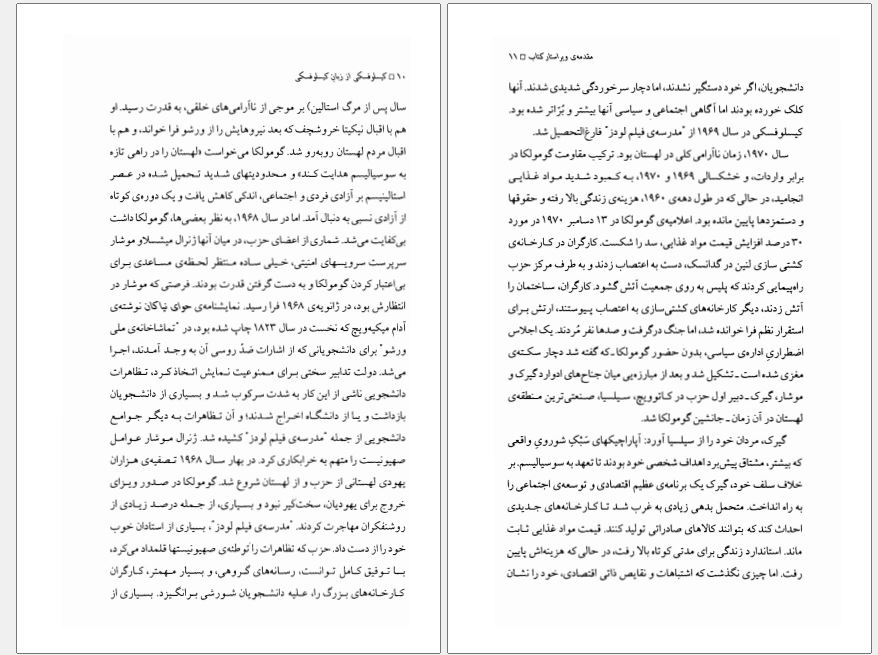 ۱۰ □ کیسلوفسکی از زبان کیسلوفسکی
سال پس از مرگ استالین) بر موجی از ناآرامی‌های خلقی، به قدرت رسید. او
هم با اقبال نیکیتا خروشچف که بعد نیروهایش را از ورشو فرا خواند، و هم با
اقبال مردم لهستان روبه‌رو شد. گومولکا می‌خواست «لهستان را در راهی تازه
به سوسیالیسم هدایت کند» و محدودیتهای شدید تحمیل شده در عصر
استالینیسم بر آزادی فردی و اجتماعی، اندکی کاهش یافت و یک دوره‌ی کوتاه
از آزادی نسبی به دنبال آمد. اما در سال ۱۹۶۸، به نظر بعضی‌ها، گومولکا داشت
بی‌کفایت می‌شد. شماری از اعضای حزب، در میان آنها ژنرال میتسلاو موشار
سرپرست سرویسهای امنیتی، خیلی ساده منتظر لحظه‌ی مساعدی برای
بی‌اعتبار کردن گومولکا و به دست گرفتن قدرت بودند. فرصتی که موشار در
انتظارش بود، در ژانویه‌ی ۱۹۶۸ فرا رسید. نمایشنامه‌ی حوای نیاکان نوشته‌ی
آدام میکیه‌ویچ که نخست در سال ۱۸۲۳ چاپ شده بود، در "تماشاخانه‌ی ملی
ورشو" برای دانشجویانی که از اشارات ضدّ روسی آن به وجد آمدند، اجرا
می‌شد. دولت تدابیر سختی برای ممنوعیت نمایش اتخاذ کرد، تظاهرات
دانشجویی ناشی از این کار به شدت سرکوب شد و بسیاری از دانشجویان
بازداشت و یا از دانشگاه اخراج شدند؛ و آن تظاهرات به دیگر جوامع
دانشجویی از جمله "مدرسه‌ی فیلم لودز" کشیده شد. ژنرال موشار عوامل
صهیونیست را متهم به خرابکاری کرد. در بهار سال ۱۹۶۸ تصفیه‌ی هزاران
یهودی لهستانی از حزب و از لهستان شروع شد. گومولکا در صدور ویزای
خروج برای یهودیان، سخت‌گیر نبود و بسیاری، از جمله درصد زیادی از
روشنفکران مهاجرت کردند. "مدرسه‌ی فیلم لودز"، بسیاری از استادان خوب
خود را از دست داد. حزب که تظاهرات را توطئه‌ی صهیونیستها قلمداد می‌کرد،
با توفیق کامل توانست، رسانه‌های گروهی، و بسیار مهمتر، کارگران
کارخانه‌های بزرگ را، علیه دانشجویان شورشی برانگیزد. بسیاری از
مقدمه‌ی ویراستار کتاب □ ۱۱
دانشجویان، اگر خود دستگیر نشدند، اما دچار سرخوردگی شدیدی شدند. آنها
کلک خورده بودند اما آگاهی اجتماعی و سیاسی آنها بیشتر و بُرّاتر شده بود.
کیسلوفسکی در سال ۱۹۶۹ از "مدرسه‌ی فیلم لودز" فارغ‌التحصیل شد.
سال ۱۹۷۰، زمان ناآرامی کلی در لهستان بود. ترکیب مقاومت گومولکا در
برابر واردات، و خشکسالی ۱۹۶۹ و ۱۹۷۰، به کمبود شدید مواد غذایی
انجامید، در حالی که در طول دهه‌ی ۱۹۶۰، هزینه‌ی زندگی بالا رفته و حقوقها
و دستمزدها پایین مانده بود. اعلامیه‌ی گومولکا در ۱۳ دسامبر ۱۹۷۰ در مورد
۳۰ درصد افزایش قیمت مواد غذایی، سد را شکست. کارگران در کارخانه‌ی
کشتی سازی لنین در گدانسک، دست به اعتصاب زدند و به طرف مرکز حزب
راه‌پیمایی کردند که پلیس به روی جمعیت آتش گشود. کارگران، ساختمان را
آتش زدند، دیگر کارخانه‌های کشتی‌سازی به اعتصاب پیوستند، ارتش برای
استقرار نظم فرا خوانده شد، اما جنگ درگرفت و صدها نفر مُردند. یک اجلاس
اضطراریِ اداره‌ی سیاسی، بدون حضور گومولکا ـ که گفته شد دچار سکته‌ی
مغزی شده است ـ تشکیل شد و بعد از مبارزه‌یی میان جناح‌های ادوارد گیرک و
موشار، گیرک ـ دبیر اول حزب در کاتوویچ، سیلسیا، صنعتی‌ترین منطقه‌ی
لهستان در آن زمان ـ جانشین گومولکا شد.
گیرک، مردان خود را از سیلسیا آورد: آپاراچیکهای سَبْکِ شوروی واقعی
که بیشتر، مشتاق پیش‌برد اهداف شخصی خود بودند تا تعهد به سوسیالیسم. بر
خلاف سلف خود، گیرک یک برنامه‌ی عظیم اقتصادی و توسعه‌ی اجتماعی را
به راه انداخت. متحمل بدهی زیادی به غرب شد تا کارخانه‌های جدیدی
احداث کند که بتوانند کالاهای صادراتی تولید کنند. قیمت مواد غذایی ثابت
ماند. استاندارد زندگی برای مدتی کوتاه بالا رفت، در حالی که هزینه‌اش پایین
رفت. اما چیزی نگذشت که اشتباهات و نقایص ذاتی اقتصادی، خود را نشان